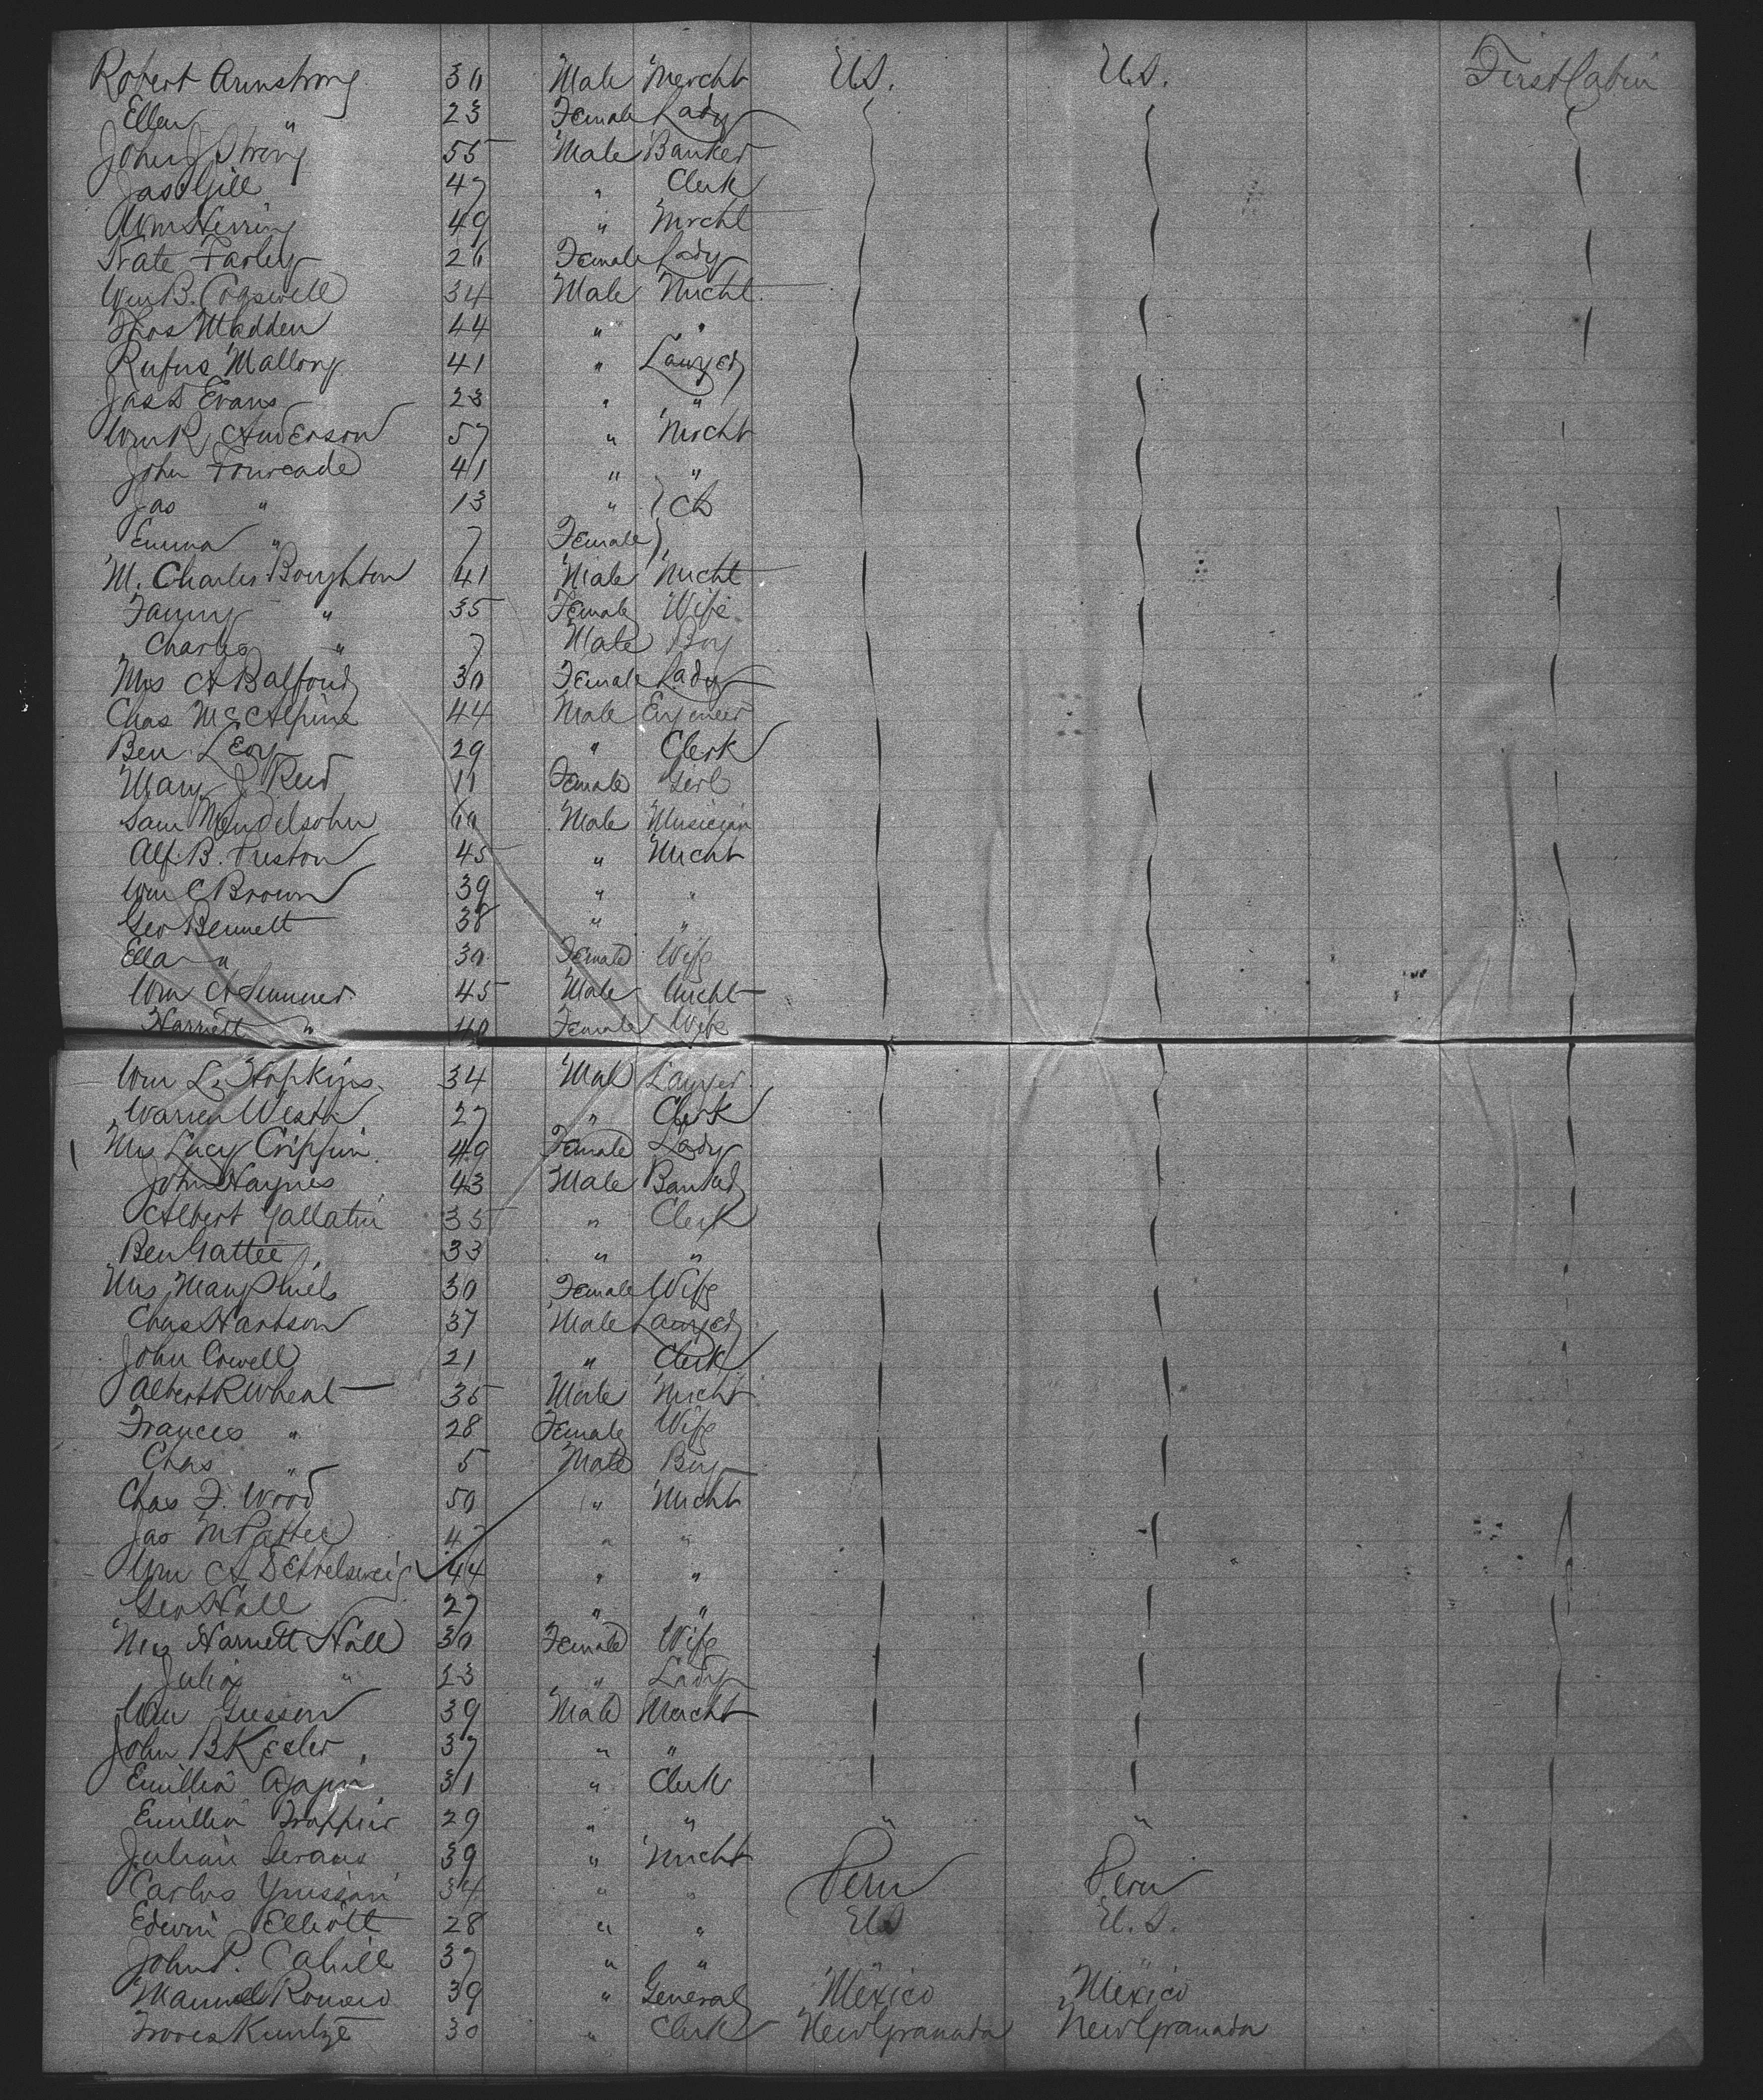 Robert Armstrong 30 Male Mercht U.S. U.S. First Cabin
Ellen " 23 Female Lady
John J Strong 55 Male Banker
Jas Gill 47 " Clerk
Wm Herring 49 " Mrcht
Kate Farley 26 Female Lady
Wm B. Cogswell 34 Male Mrcht
Thos Madden 44 " "
Rufus Mallory 41 " Lawyer
Jas D Evans 23 " "
Wm R Anderson 57 " Mrcht
John Fourcade 41 " "
Jas " 13 " } Ch
Emma " 7 Female }
M. Charles Boughton 41 Male Mrcht
Fanny " 35 Female Wife
Charles " 7 Male Boy
Mrs A Balfour 30 Female Lady
Chas McAlpine 44 Male Engineer
Ben Levy 29 " Clerk
Mary J Reid 11 Female Girl
Sam Mendelsohn 60 Male Musician
Alf B. Preston 45 " Mrcht
Wm C Brown 39 " "
Geo Bennett 38 " "
Ella " 30 Female Wife
Wm A Sumner 45 Male Mrcht
Harriett " 40 Female Wife
Wm L Hopkins 34 Male Lawyer
Warren 27 " Clerk
Mrs Lucy Crippin 49 Female Lady
John Haynes 43 Male
Albert Gallatin 35 " Clerk
Ben Gattee 33 " "
Mrs Mary 30 Female Wife
Chas Hartson 37 Male Lawyer
John Cowell 21 " Clerk
Albert R Wheat 35 Male Mrcht
Frances " 28 Female Wife
Chas " 5 Male Boy
Chas F. Wood 50 " Mrcht
Jas M Pattee 4 " "
Wm A 44 " "
Geo Hall 27 " "
Mrs Harriett Hall 30 Female Wife
Julia " 23 " Lady
Wm 39 Male Mercht
John B Kesler 37 " "
Emillia 31 " Clerk
Emillia 29 " " " "
Julian 39 " Mrcht
Carlos 34 " " Peru Peru
Edwin Elliott 28 " " U.S. U.S.
John P. Cahill 37 " " " "
Manuel Romero 39 " General Mexico Mexico
Kuntze 30 " Clerk New Granada New Granada